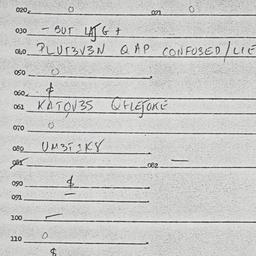 020. 0 021 0
030 - BUT LAJ G +
040 ?LUT3V3N Q AP CONFUSED/LIE
050 0
060 $
061 KATOV35 QFLEJOKE
070 0
080 UM3TIK8
081 082 —
090 $
091 —
100 —
110 0
$